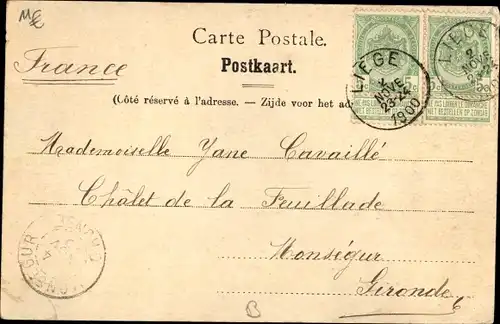 Carte Postale.
Postkaart.
France
(Côté réservé à l'adresse. - Zijde voor het ad
LIEGE
2
NOVE
23-24
1900
LIEGE
2
NOVE
1900
Mademoiselle Yane Cavaillé
Châlet de la Feuillade
Monségur
Gironde
MONSEGUR
B